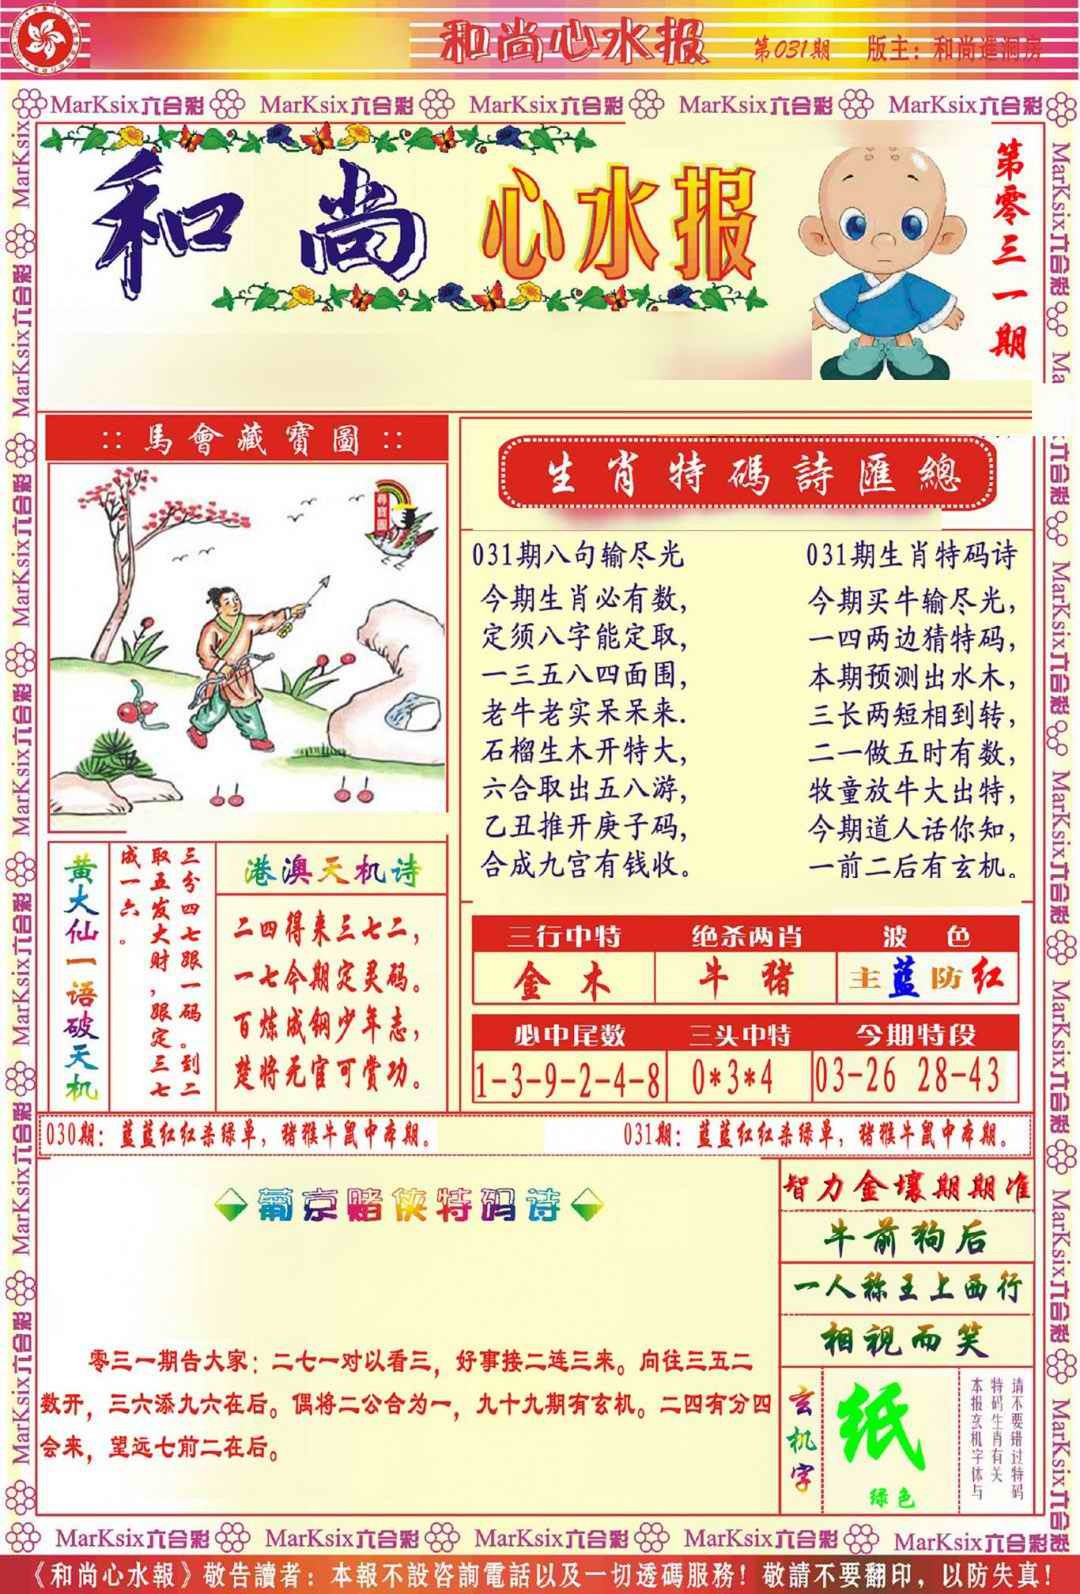 和尚心水报 第031期 版主：和尚進洞房
MarKsix六合彩 MarKsix六合彩 MarKsix六合彩 MarKsix六合彩 MarKsix六合彩
和尚心水报
第零三一期
::馬會藏寶圖::
尋寶圖
生肖特碼詩匯總
031期八句输尽光
今期生肖必有数，
定须八字能定取，
一三五八四面围，
老牛老实呆呆来.
石榴生木开特大，
六合取出五八游，
乙丑推开庚子码，
合成九宫有钱收。
031期生肖特码诗
今期买牛输尽光，
一四两边猜特码，
本期预测出水木，
三长两短相到转，
二一做五时有数，
牧童放牛大出特，
今期道人话你知，
一前二后有玄机。
黄大仙一语破天机
三分四七跟一码。到二
取五发大财，跟定三七
成一六。
港澳天机诗
二四得来三七二，
一七今期定灵码。
百炼成钢少年志，
楚将无官可赏功。
三行中特 绝杀两肖 波色
金木 牛猪 主蓝防红
必中尾数 三头中特 今期特段
1-3-9-2-4-8 0*3*4 03-26 28-43
030期：蓝蓝红红杀绿单，猪猴牛鼠中本期。 031期：蓝蓝红红杀绿单，猪猴牛鼠中本期。
葡京赌侠特码诗
零三一期告大家：二七一对以看三，好事接二连三来。向往三五二
数开，三六添九六在后。偶将二公合为一，九十九期有玄机。二四有分四
会来，望远七前二在后。
智力金壤期期准
牛前狗后
一人称王上西行
相视而笑
玄机字
纸
绿色
请不要错过特码
特码生肖有关
本报玄机字体与
MarKsix六合彩 MarKsix六合彩 MarKsix六合彩 MarKsix六合彩 MarKsix六合彩
《和尚心水報》敬告讀者：本報不設咨詢電話以及一切透碼服務！敬請不要翻印，以防失真！